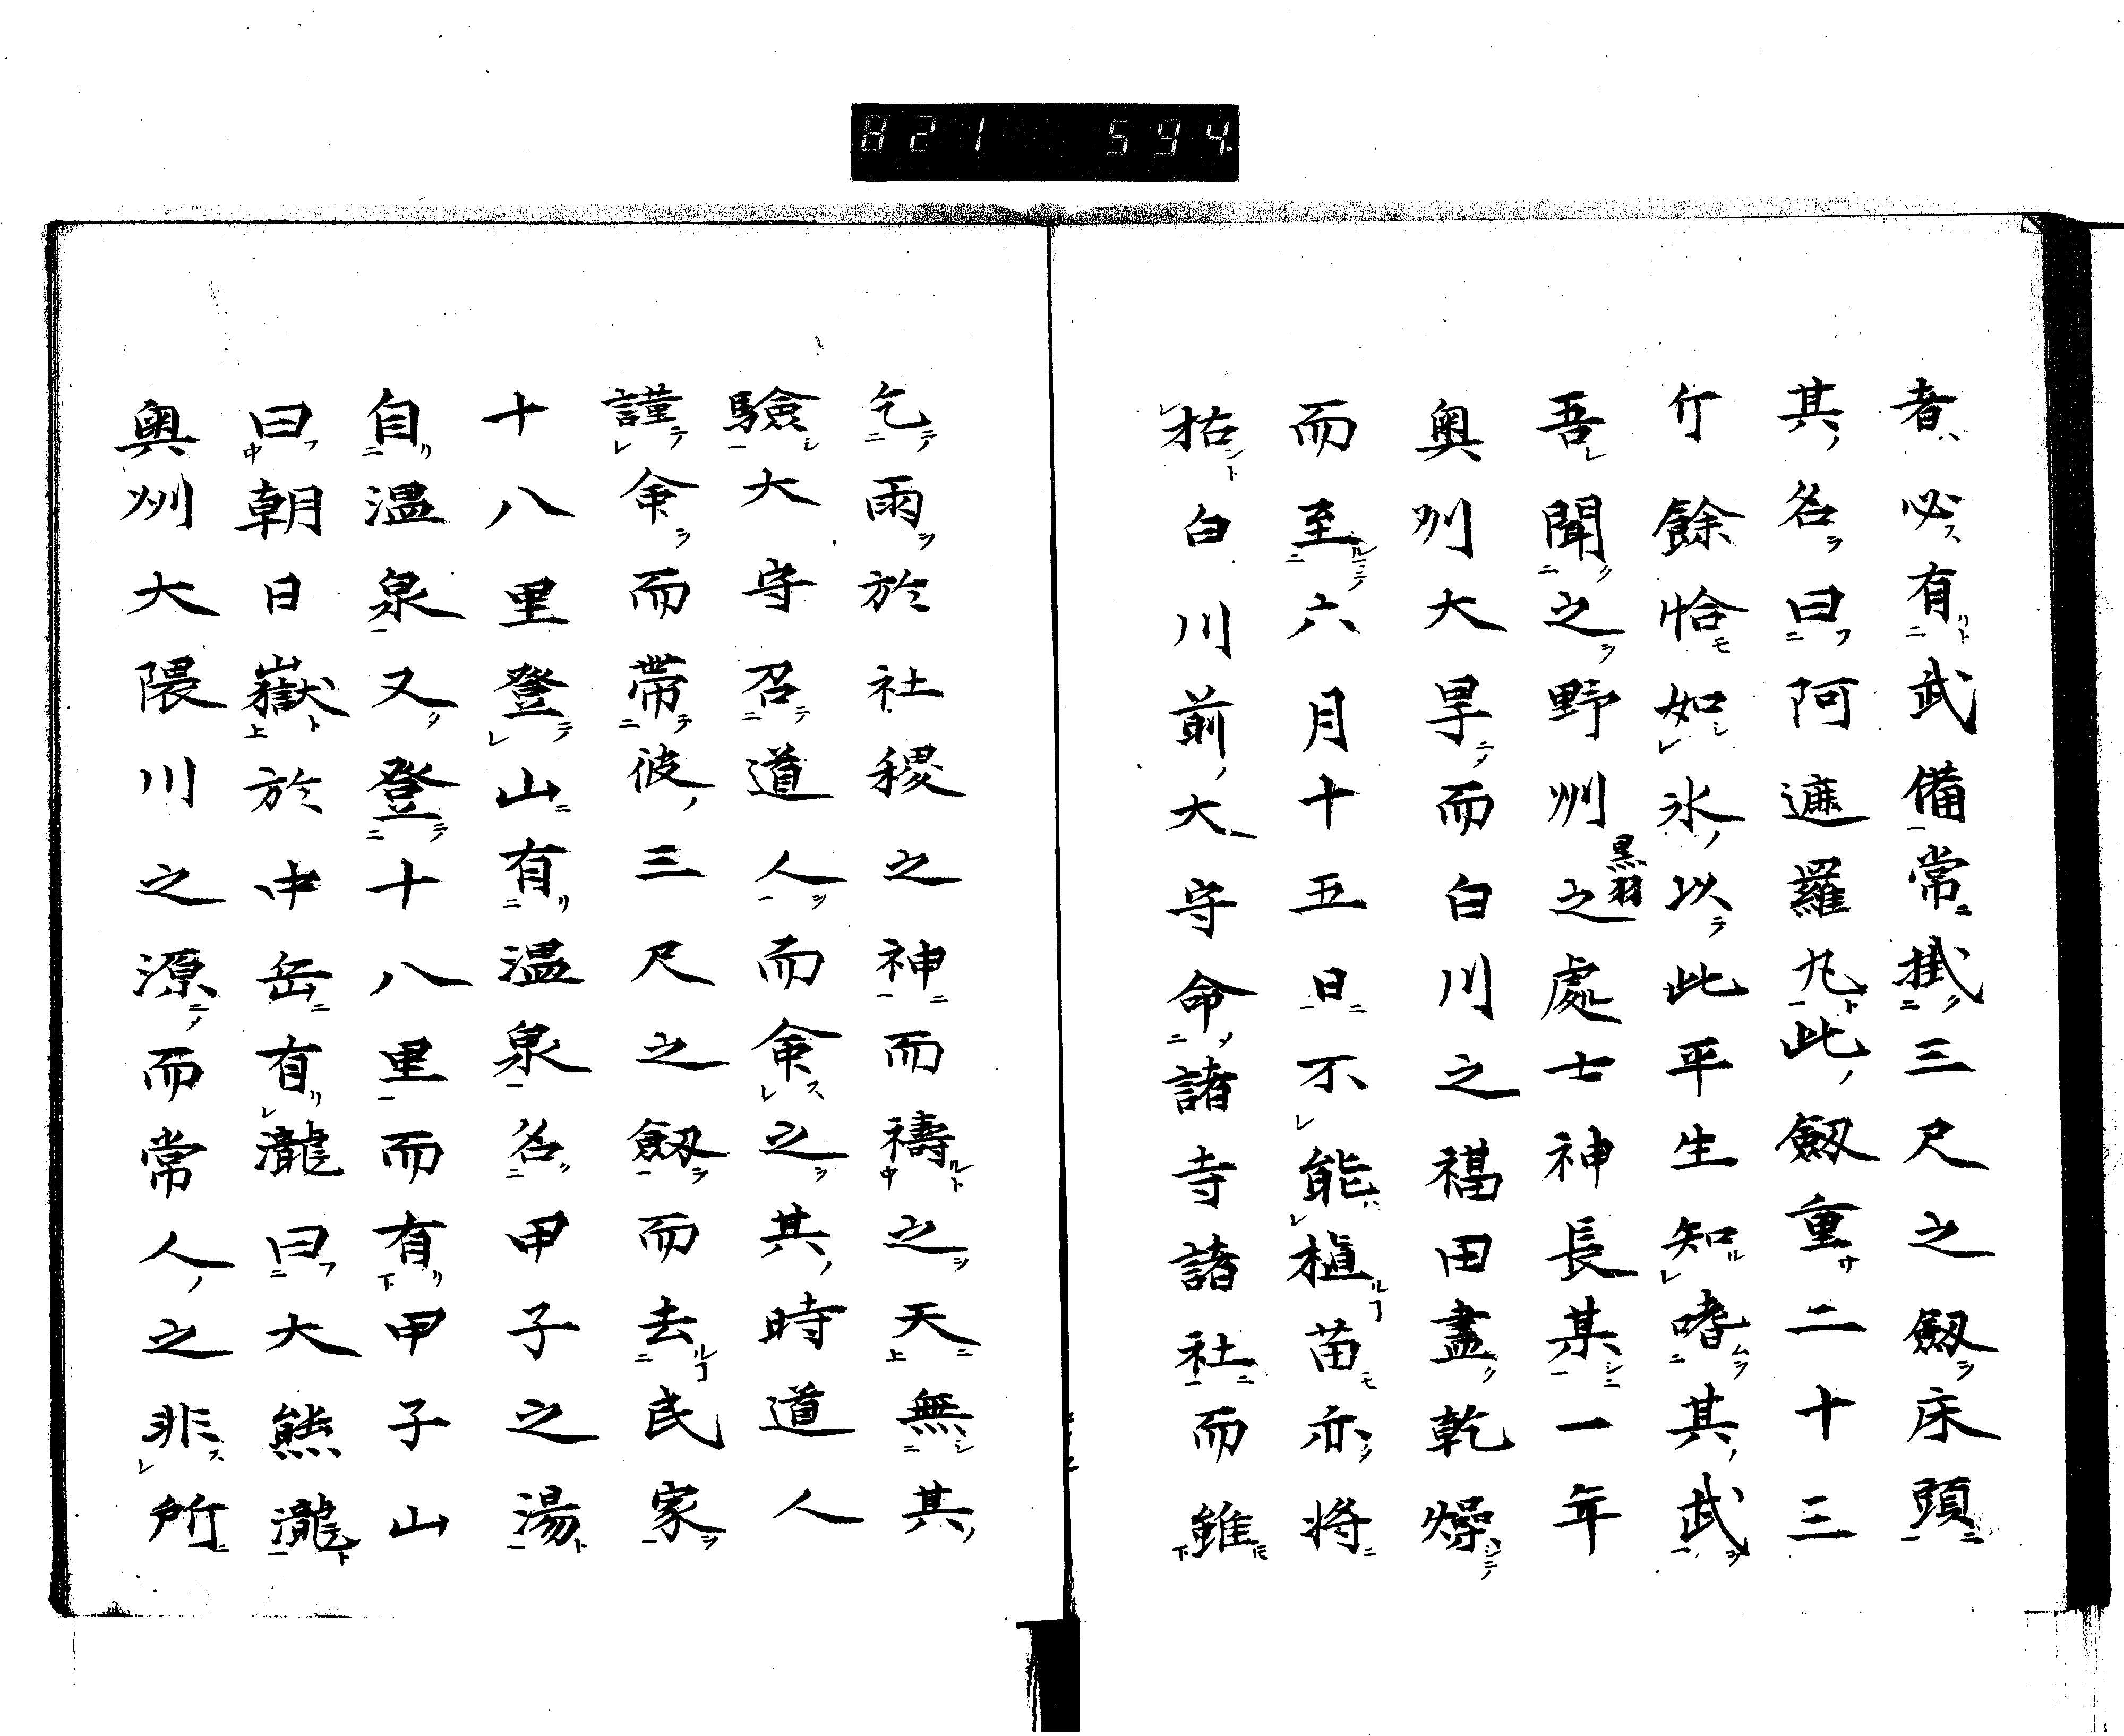 821 594.
者必有武備常掛三尺之劔床頭
其名曰阿遮羅丸此劔重二十三
斤餘恰如氷以此平生知嗜其武
吾聞之野州黒羽之處士神長某一年
奥州大旱而白川之福田盡乾燥
而至六月十五日不能植苗亦将
枯白川前大守命諸寺諸社而雖
乞雨於社稷之神而禱之天無其
驗大守召道人而命之其時道人
謹命而帯彼三尺之劔而去民家
十八里登山有温泉名甲子之湯
自温泉又登十八里而有甲子山
曰朝日嶽於中岳有瀧曰大熊瀧
奥州大隈川之源而常人之非所